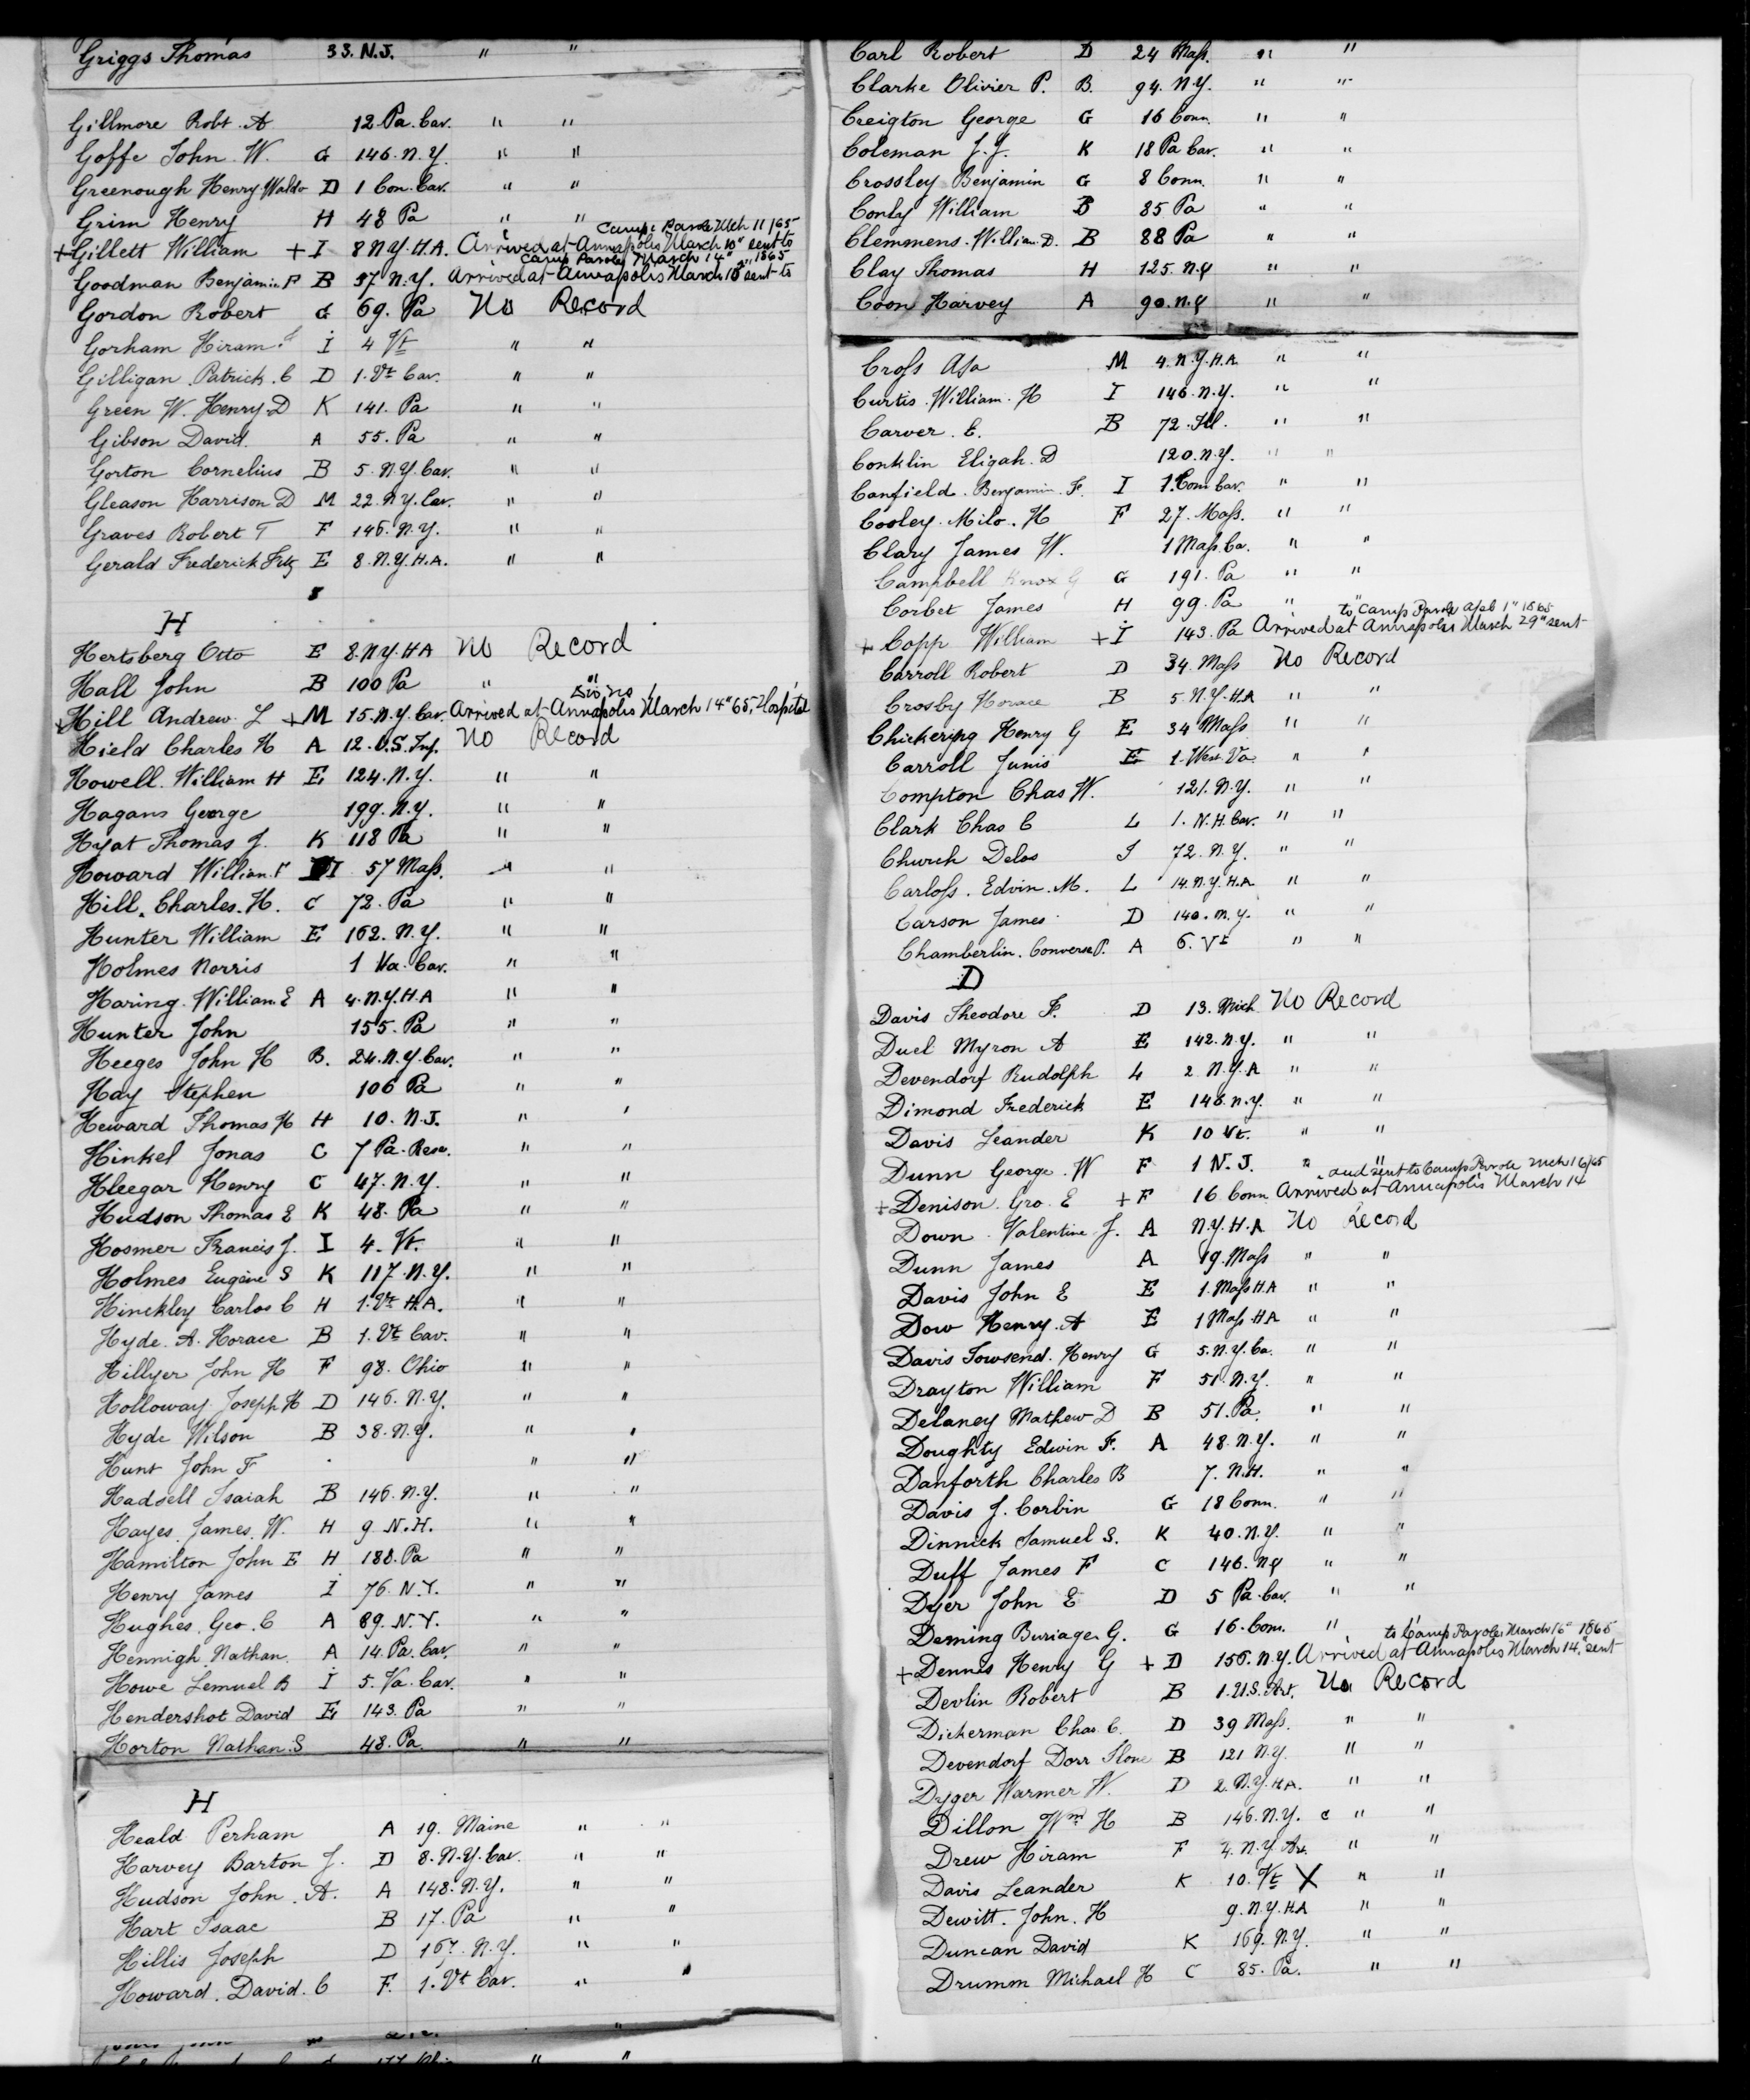 Griggs Thomas 33. N.J. " "
Gillmore Robt. A 12. Pa. Cav. " "
Goffe John. W. G 146. N.Y. " "
Greenough Henry Waldo D 1 Con. Cav. " "
Grim Henry H 48 Pa " "
Camp Parole Mch 11/65
+ Gillett William + I 8 N.Y. H.A. Arrived at Annapolis March 10" sent to
Camp Parole March 14" 1865
Goodman Benjamin F B 57 N.Y. Arrived at Annapolis March 10" sent to
Gordon Robert G 69. Pa No Record
Gorham Hiram I 4 Vt " "
Gilligan. Patrick. C D 1. Vt Cav. " "
Green W. Henry. D K 141. Pa " "
Gibson David. A 55. Pa " "
Gorton Cornelius B 5. N.Y. Cav. " "
Gleason Harrison D M 22. N.Y. Cav. " "
Graves Robert T F 146. N.Y. " "
Gerald Frederick Fitz E 8. N.Y. H.A. " "
H
Hertsberg Otto E 8. N.Y. H A No Record
Hall John B 100 Pa " "
Div. no 1
+ Hill Andrew. L + M 15. N.Y. Cav. Arrived at Annapolis March 14" 65, Hospital
Hield Charles H A 12. U.S. Inf. No Record
Howell. William H E 124. N.Y. " "
Hagans George 199. N.Y. " "
Hyat Thomas J. K 118 Pa " "
Howard William. F I 57 Mass. " "
Hill. Charles. H. C 72. Pa " "
Hunter William E 162. N.Y. " "
Holmes Norris 1 Va. Cav. " "
Haring. William. E A 4. N.Y. H.A " "
Hunter John 155. Pa " "
Heeges John H B. 24. N.Y. Cav. " "
Hay Stephen 106 Pa " "
Heward Thomas H H 10. N.J. " "
Hinkel Jonas C 7 Pa. Rese. " "
Hleegar Henry C 47. N.Y. " "
Hudson Thomas E K 48. Pa " "
Hosmer Francis J. I 4. Vt. " "
Holmes Eugene S K 117. N.Y. " "
Hinckley Carlos C H 1. Vt H.A. " "
Hyde. A. Horace B 1. Vt Cav. " "
Hillyer John H F 98. Ohio " "
Holloway. Joseph H D 146. N.Y. " "
Hyde Wilson B 38. N.Y. " "
Hunt John F " "
Hadsell Isaiah B 146. N.Y. " "
Hayes. James. W. H 9 N.H. " "
Hamilton John E H 188. Pa " "
Henry James I 76. N.Y. " "
Hughes. Geo. C A 89. N.Y. " "
Hennigh. Nathan. A 14. Pa. Cav. " "
Howe Lemuel B I 5. Va. Cav. " "
Hendershot David E 143. Pa " "
Horton Nathan. S 48. Pa. " "
H
Heald Perham A 19. Maine " "
Harvey Barton J. D 8. N.Y. Cav. " "
Hudson John. A. A 148. N.Y. " "
Hart Isaac B 17. Pa " "
Hillis Joseph D 167. N.Y. " "
Howard. David. C F. 1. Vt Cav. " "
Carl Robert D 24 Mass. " "
Clarke Olivier P. B. 94. N.Y. " "
Creigton George G 16 Conn. " "
Coleman J. J. K 18 Pa Cav. " "
Crossley Benjamin G 8 Conn. " "
Conly William B 85 Pa " "
Clemmens. William. D. B 88 Pa " "
Clay Thomas H 125. N.Y " "
Coon Harvey A 90. N.Y " "
Cross Asa M 4. N.Y. H.A. " "
Curtis. William. H I 146. N.Y. " "
Carver. E. B 72. Ill. " "
Conklin Eligah. D 120. N.Y. " "
Canfield. Benjamin. F. I 1. Con. Cav. " "
Cooley. Milo. H F 27. Mass. " "
Clary James W. 1 Mass. Ca. " "
Campbell Knox G G 191. Pa " "
Corbet James H 99. Pa " "
to Camp Parole Apl 1" 1865
+ Copp William + I 143. Pa Arrived at Annapolis March 29" sent
Carroll Robert D 34. Mass No Record
Crosby Horace B 5. N.Y. H.A " "
Chickering Henry G E 34 Mass. " "
Carroll Junis E 1. West. Va. " "
Compton Chas W. 121. N.Y. " "
Clark Chas C L 1. N.H. Cav. " "
Church Delos I 72. N.Y. " "
Carloss. Edvin. M. L 14. N.Y. H.A " "
Carson James D 140. N.Y. " "
Chamberlin. Converse P. A 6. Vt " "
D
Davis Theodore F. D 13. Mich No Record
Duel Myron A E 142. N.Y. " "
Devendorf Rudolph L 2 N.Y. A " "
Dimond Frederick E 146. N.Y. " "
Davis Leander K 10 Vt. " "
Dunn George. W F 1 N. J. " "
and sent to Camp Parole Mch 16/65
+ Denison. Geo. E + F 16 Conn Arrived at Annapolis March 14
Down. Valentine J. A N.Y. H.A No Record
Dunn James A 19. Mass " "
Davis John E E 1. Mass H A " "
Dow Henry. A E 1 Mass. H A " "
Davis Towsend. Henry G 5. N.Y. Ca. " "
Drayton William F 51. N.Y. " "
Delaney Mathew D B 51. Pa. " "
Doughty Edwin F. A 48. N.Y. " "
Danforth Charles B 7. N.H. " "
Davis J. Corbin G 18 Conn. " "
Dinnick Samuel S. K 40. N.Y. " "
Duff James F C 146. N.Y " "
Dyer John E D 5 Pa. Cav. " "
Deming Buriage. G. G 16. Conn. " "
to Camp Parole March 16" 1865
+ Dennis Henry G + D 156. N.Y. Arrived at Annapolis March 14" sent
Devlin Robert B 1. U.S. Art. No Record
Dickerman Chas. C. D 39 Mass. " "
Devendorf Dorr Stone B 121 N.Y. " "
Dyger Warmer W. D 2. N.Y. H A. " "
Dillon Wm H B 146. N.Y. c " "
Drew Hiram F 4. N.Y. Art. " "
Davis Leander K 10. Vt X " "
Dewitt. John. H 9. N.Y. H A " "
Duncan David K 169. N.Y. " "
Drumm Michael H C 85. Pa. " "